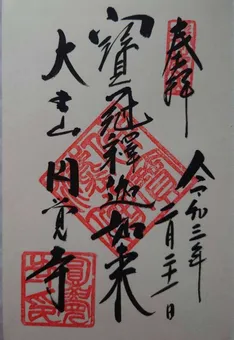 奉拝
令和三年
二月二十一日
寶冠釋迦如来
大本山
円覚寺